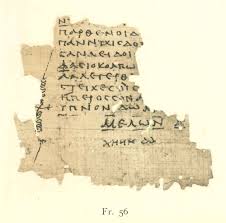 Ν
ΠΑΡΘΕΝΟΙΔ
ΠΑΝΝΥΧΙϹΔΟ
ϹΑΝΑΕΙΔΟΙ
ΦΑϹΙΟΚΟΛΠΩ
ΑΛΛΕΓΕΡΘ
ϹΤΕΙΧΕϹΟΙ
ΗΠΕΡΟϹϹΟΝ
ΥΠΝΟΝ
ΜΕΛΩΝ
ΧΗΗΗΔΔ
Fr. 56